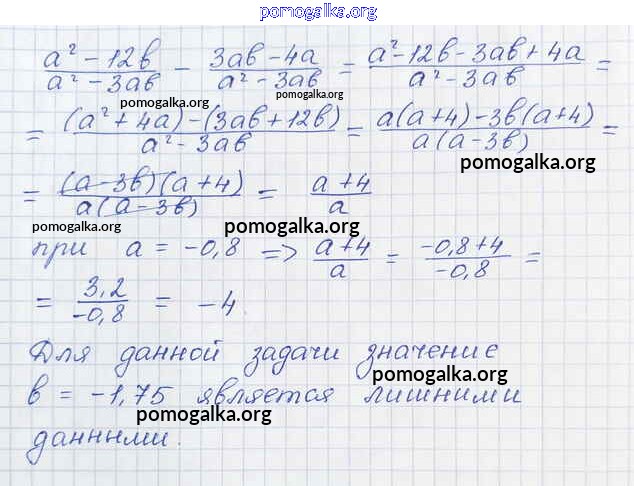 pomogalka.org
(a² - 12b)/(a² - 3ab) - (3ab - 4a)/(a² - 3ab) = (a² - 12b - 3ab + 4a)/(a² - 3ab) =
pomogalka.org pomogalka.org
= ((a² + 4a) - (3ab + 12b))/(a² - 3ab) = (a(a + 4) - 3b(a + 4))/(a(a - 3b)) =
pomogalka.org
= ((a - 3b)(a + 4))/(a(a - 3b)) = (a + 4)/a
pomogalka.org pomogalka.org
при a = -0,8 => (a + 4)/a = (-0,8 + 4)/(-0,8) =
= 3,2/(-0,8) = -4
Для данной задачи значение
pomogalka.org
b = -1,75 является лишними
pomogalka.org
данными.